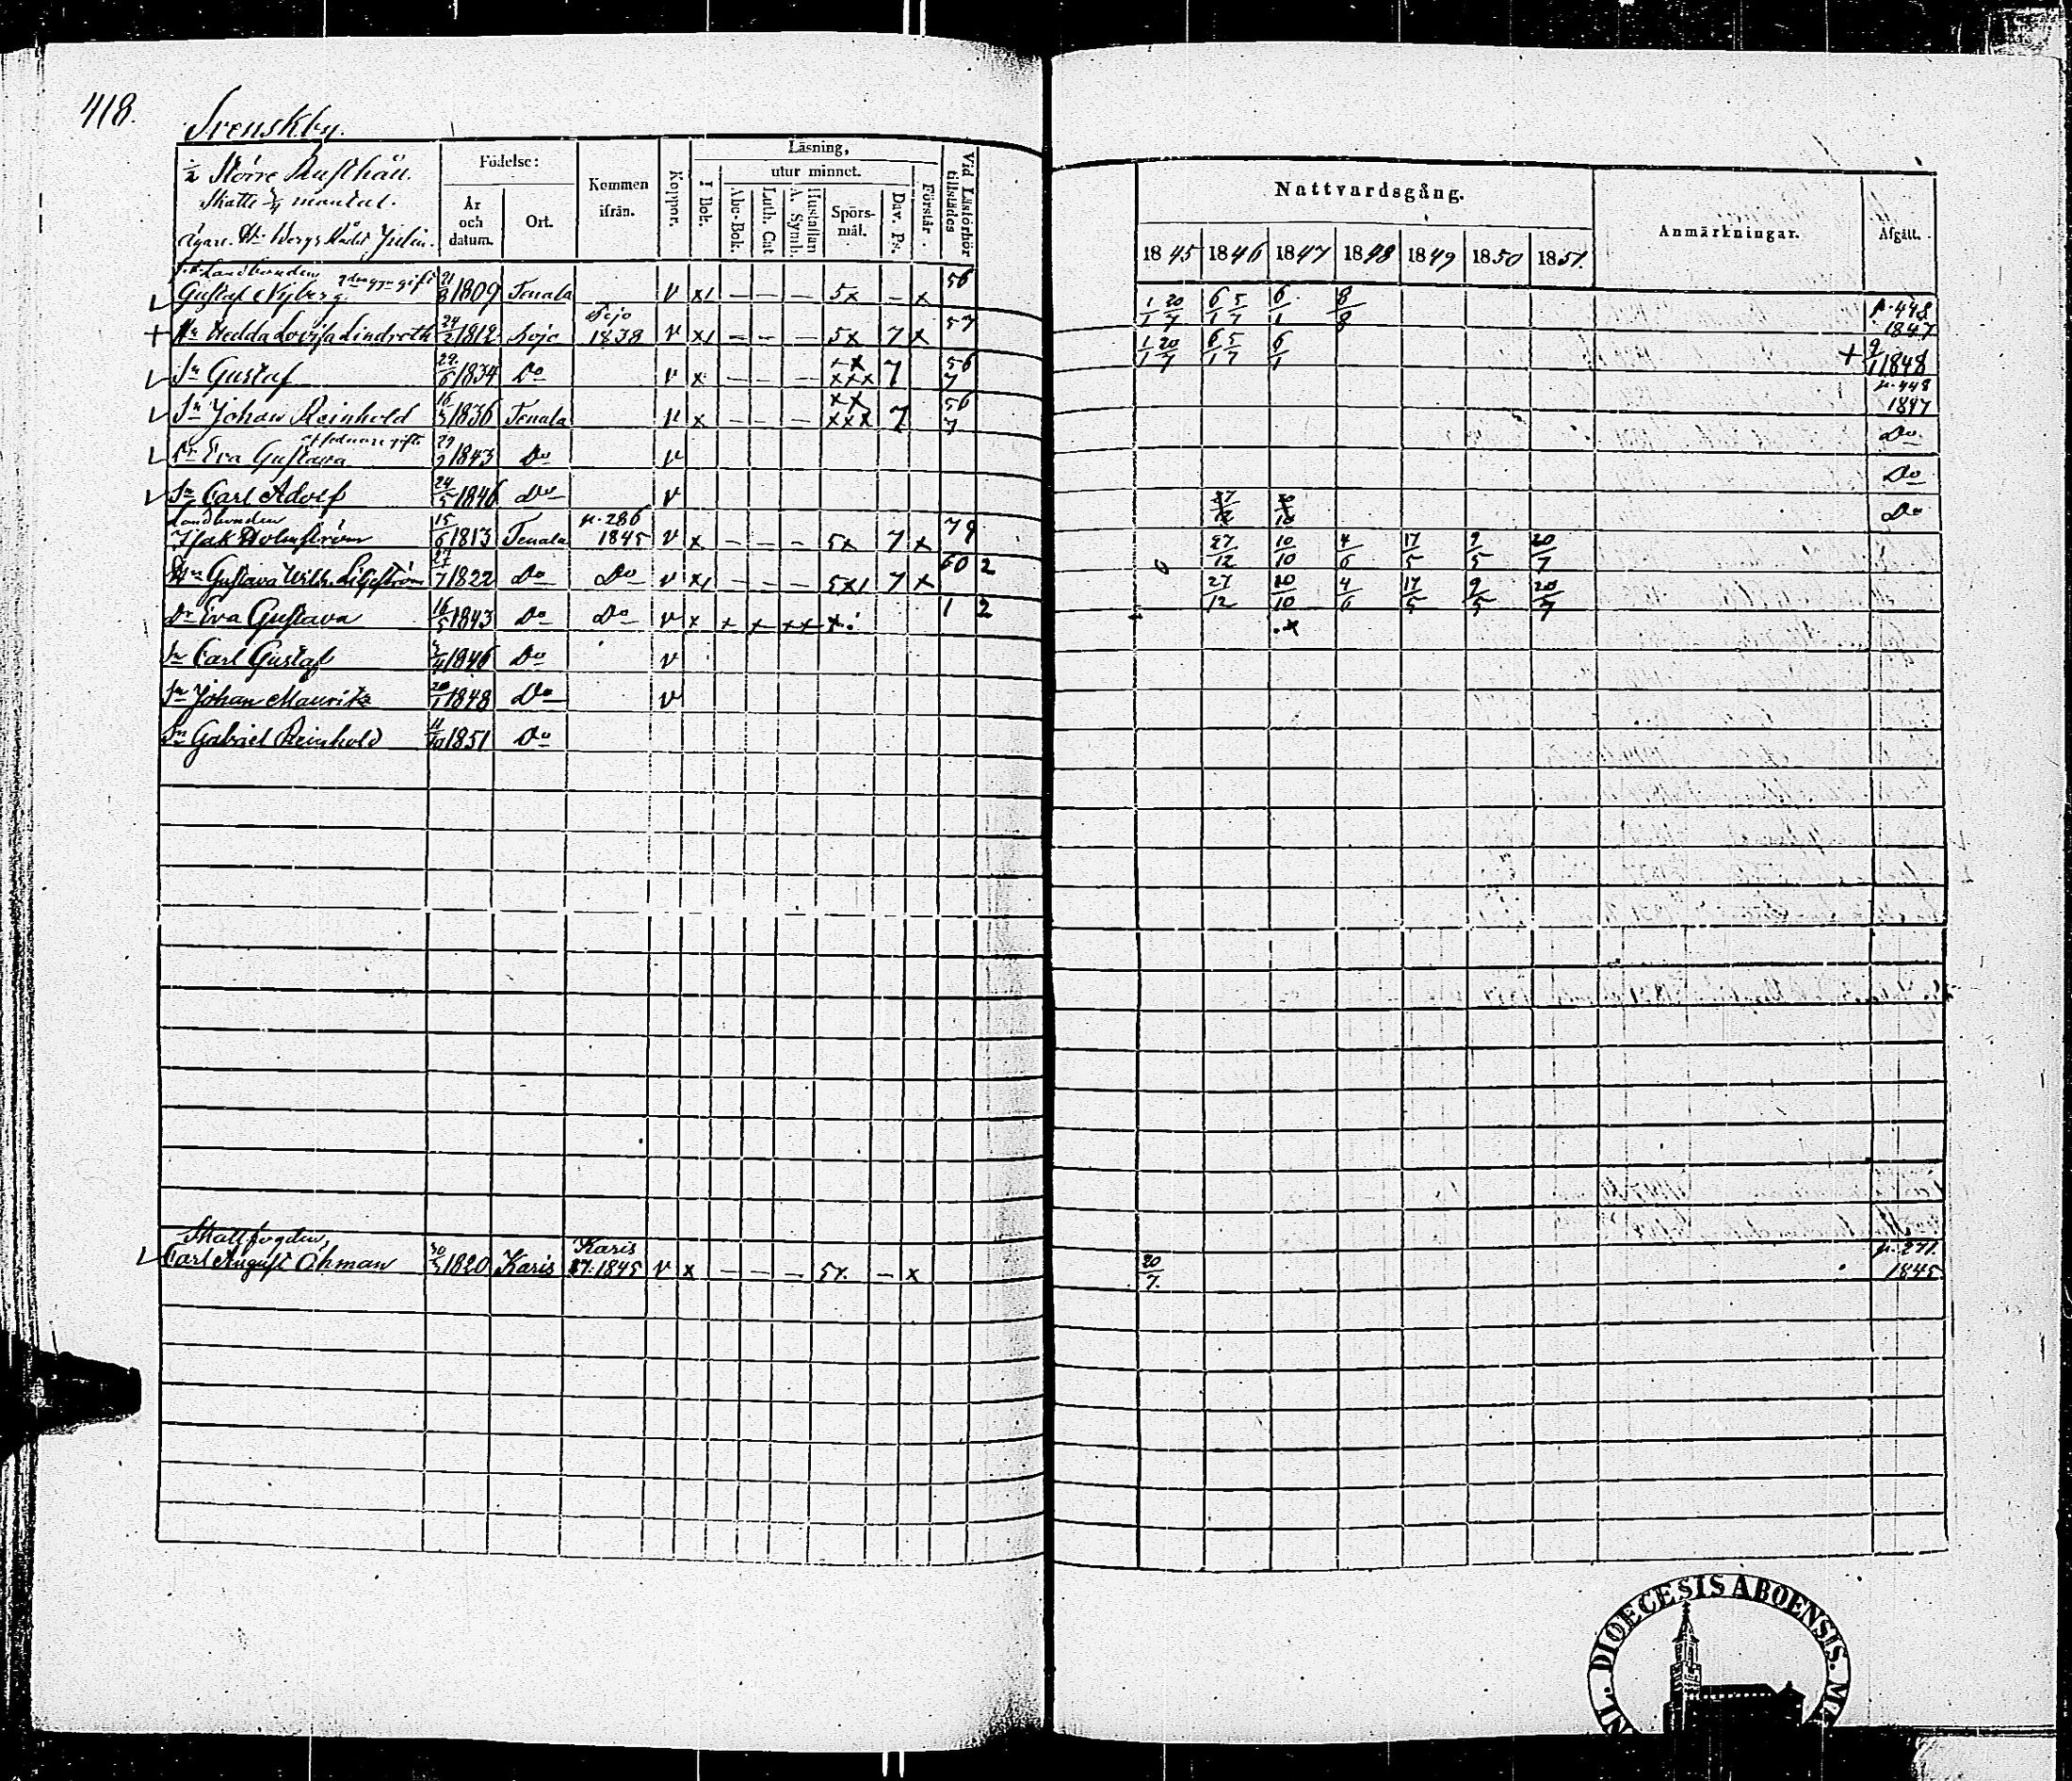 418.
Svenskby.
½ Större Rusthåll.
Skatte ¾ mantal.
Ägare. Hr Bergs Rådet Julin.
Födelse:
År och datum.
Ort.
Kommen ifrån.
Koppor.
Läsning,
I Bok.
utur minnet.
Abc-Bok.
Luth. Cat
A. Symb.
Hustaflan
Spörs-mål.
Dav. Ps.
Förstår.
Vid Läsförhör tillstädes
Nattvardsgång.
1845 1846 1847 1848 1849 1850 1851.
Anmärkningar.
Afgått.
f.d. Landbonden 2dra ggn gift
Gustaf Nyberg 21/8 1809 Tenala v x1 – – – 5x – x 56 1/1 20/7 6/1 5/7 6/1 8/8 p. 448 1847
+ Hu Hedda Lovisa Lindroth 24/2 1812 Lojo 1838 v x1 – – – 5x 7 x 57 1/1 20/7 6/1 5/7 6/1 + 9/1 1848
Sn Gustaf 29/6 1834 Do v x – – – xxx 7 56 7 p. 448 1847
Sn Johan Reinhold 16/3 1836 Tenala v x – – – xx xxx 7 56 7 Do
Dr Eva Gustava 1843 Do v Do
Sn Carl Adolf 24/5 1846 Do v 27/12 10/10 Do
Landbonden p. 286
Isak Holmström 15/6 1813 Tenala 1845 v x – – – 5x 7 x 79 27/12 10/10 4/6 17/5 9/5 20/7
Hu Gustava Wilh. Liljeström 27/7 1822 Do Do v x1 – – – 5x1 7 x 60 2 27/12 10/10 4/6 17/5 9/5 20/7
Dr Eva Gustava 16/5 1843 Do Do v x x x xx x 1 2
Sn Carl Gustaf 3/4 1846 Do v
Sn Johan Mauritz 20/1 1848 Do v
Sn Gabriel Reinhold 11/10 1851 Do
Stallfogden, Karis p. 271.
Carl August Öhman 1820 Karis 1845 v x – – – 5x. – x 20/7. 1845
DIOECESIS ABOENSIS.